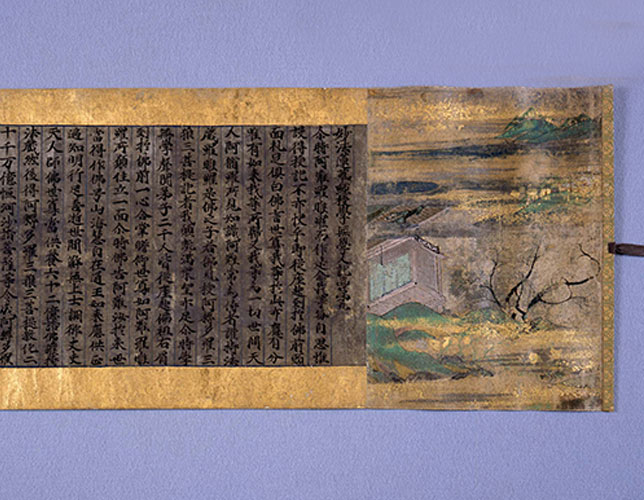 妙法蓮華經授學無學人記品第九
尒時阿難羅睺羅而作是念我等每自思惟
設得授記不亦快乎即從座起到於佛前頭
面礼足俱白佛言世尊我等於此亦應有分
唯有如來我等所歸又我等為一切世間天
人阿脩羅所見知識阿難常為侍者護持法
藏羅睺羅是佛之子若佛見授阿耨多羅三
藐三菩提記者我願既滿衆望亦足尒時學
無學聲聞弟子二千人皆從座起偏袒右肩
到於佛前一心合掌瞻仰世尊如阿難羅睺
羅所願住立一面尒時佛告阿難汝於來世
當得作佛号山海慧自在通王如來應供正
遍知明行足善逝世間解無上士調御丈夫
天人師佛世尊當供養六十二億諸佛護持
法藏然後得阿耨多羅三藐三菩提教化二
十千万億恒河沙諸菩薩等令成阿耨多羅